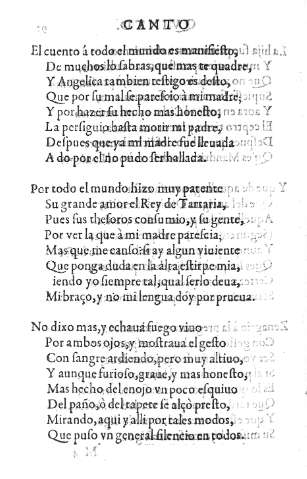 CANTO
El cuento à todo el mundo es manifiesto,
De muchos lo sabras, que mas te quadre,
Y Angelica tambien testigo es desto,
Que por su mal se parescio à mi madre,
Y por hazer su hecho mas honesto,
La persiguio hasta morir mi padre,
Despues que ya mi madre fue lleuada
A do por el no pudo ser hallada.
Por todo el mundo hizo muy patente
Su grande amor el Rey de Tartaria,
Pues sus thesoros consumio, y su gente,
Por ver la que à mi madre parescia,
Mas que me canso? si ay algun viuiente
Que ponga duda en la alta estirpe mia,
iendo yo siempre tal, qual serlo deua,
Mi braço, y no mi lengua doy por prueua.
No dixo mas, y echaua fuego viuo
Por ambos ojos, y mostraua el gesto
Con sangre ardiendo, pero muy altiuo,
Y aunque furioso, graue, y mas honesto;
Mas hecho del enojo vn poco esquiuo
Del paño, ò del tapete se alçò presto,
Mirando, aqui y alli por tales modos,
Que puso vn general silencio en todos.